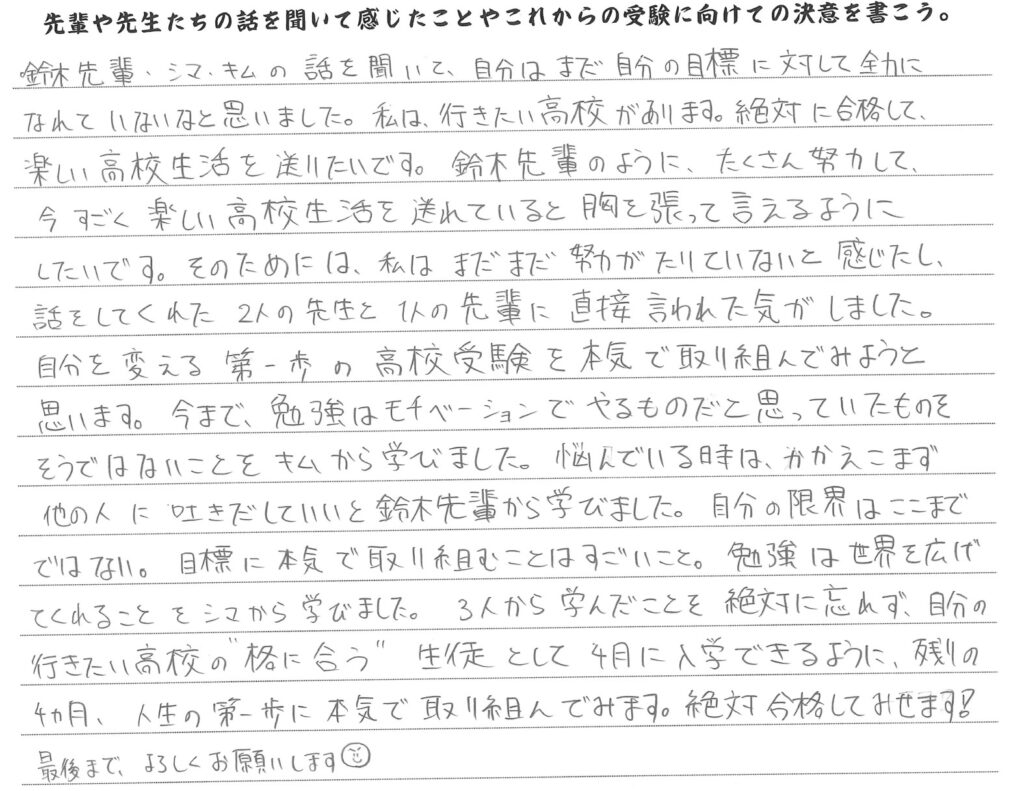 先輩や先生たちの話を聞いて感じたことやこれからの受験に向けての決意を書こう。
鈴木先輩・シマ・キムの話を聞いて、自分はまだ自分の目標に対して全力に
なれていないなと思いました。私は、行きたい高校があります。絶対に合格して、
楽しい高校生活を送りたいです。鈴木先輩のように、たくさん努力して、
今すごく楽しい高校生活を送れていると胸を張って言えるように
したいです。そのためには、私はまだまだ努力がたりていないと感じたし、
話をしてくれた2人の先生と1人の先輩に直接言われた気がしました。
自分を変える第一歩の高校受験を本気で取り組んでみようと
思います。今まで、勉強はモチベーションでやるものだと思っていたものを
そうではないことをキムから学びました。悩んでいる時は、かかえこまず
他の人に吐きだしていいと鈴木先輩から学びました。自分の限界はここまで
ではない。目標に本気で取り組むことはすごいこと。勉強は世界を広げ
てくれることをシマから学びました。3人から学んだことを絶対に忘れず、自分の
行きたい高校の"格に合う"生徒として4月に入学できるように、残りの
4カ月、人生の第一歩に本気で取り組んでみます。絶対合格してみせます!
最後まで、よろしくお願いします